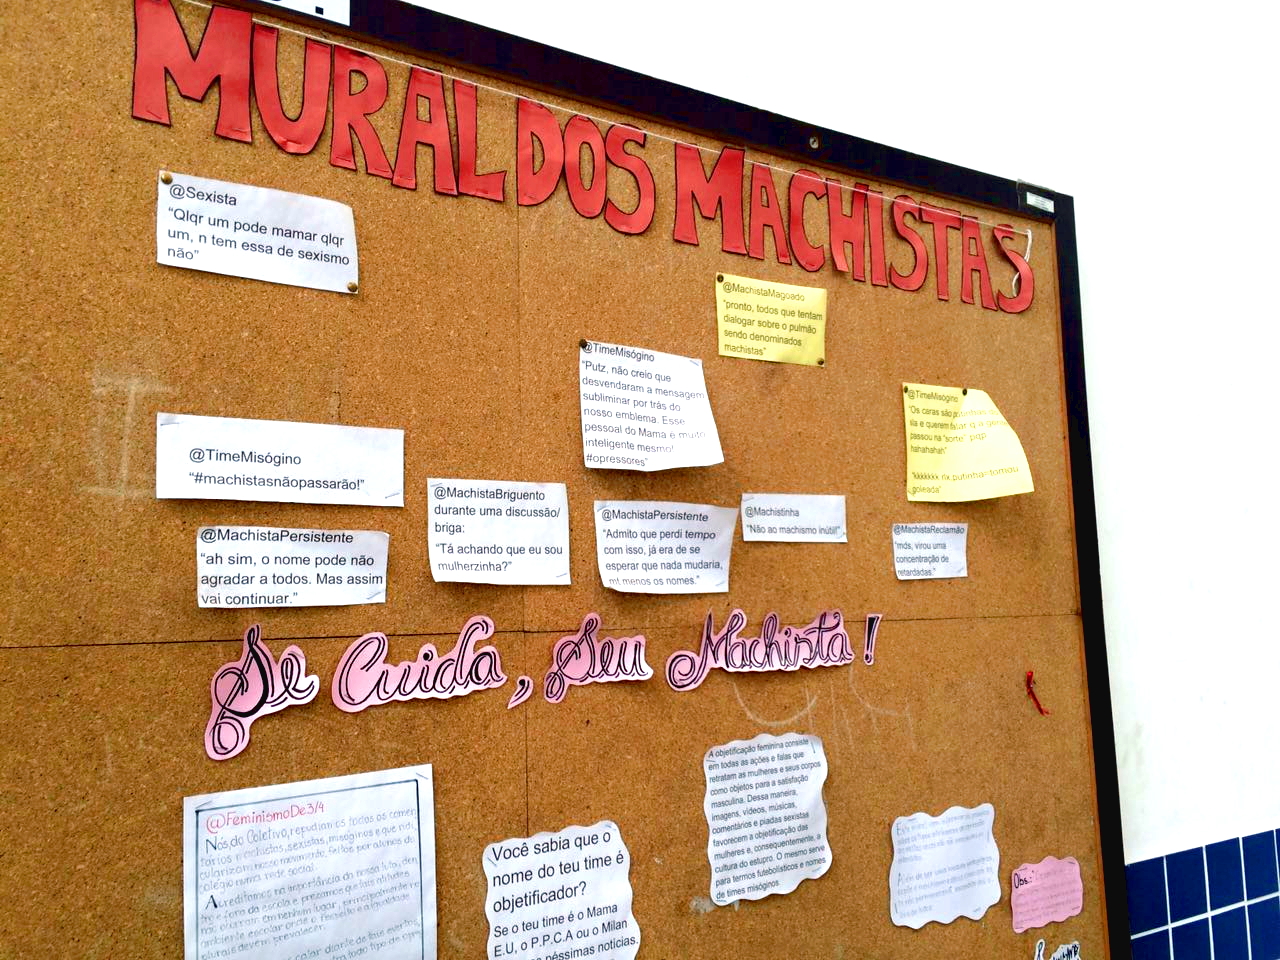 MURAL DOS MACHISTAS
@Sexista
“Qlqr um pode mamar qlqr
um, n tem essa de sexismo
não”
@MachistaMagoado
“pronto, todos que tentam
dialogar sobre o pulmão
sendo denominados
machistas”
@TimeMisógino
“Putz, não creio que
desvendaram a mensagem
subliminar por trás do
nosso emblema. Esse
pessoal do Mama é muito
inteligente mesmo!
#opressores”
@TimeMisógino
“Os caras são
lia e querem falar q a gente
passou na “sorte” pqp
hahahahah”
“kkkkkkk nx putinha tomou
goleada”
@TimeMisógino
“#machistasnãopassarão!”
@MachistaBriguento
durante uma discussão/
briga:
“Tá achando que eu sou
mulherzinha?”
@MachistaPersistente
“Admito que perdi tempo
com isso, já era de se
esperar que nada mudaria,
mt menos os nomes.”
@Machistinha
“Não ao machismo inútil!”
@MachistaReclamão
“mds, virou uma
concentração de
retardadas.”
@MachistaPersistente
“ah sim, o nome pode não
agradar a todos. Mas assim
vai continuar.”
Se Cuida, Seu Machista!
@FeminismoDe3/4
Nós do Coletivo, repudiamos todos os comen
tários machistas, sexistas, misóginos e que ridi
cularizam nosso movimento, feitos por alunos do
colégio numa rede social.
Acreditamos na importância da nossa luta, den
tro e fora da escola e prezamos que tais atitudes
não ocorram em nenhum lugar, principalmente no
ambiente escolar onde o respeito e a igualdade
plurais devem prevalecer.
calar diante de tais eventos,
todo tipo de opre
Você sabia que o
nome do teu time é
objetificador?
Se o teu time é o Mama
E.U, o P.P.C.A ou o Milan
péssimas notícias.
A objetificação feminina consiste
em todas as ações e falas que
retratam as mulheres e seus corpos
como objetos para a satisfação
masculina. Dessa maneira,
imagens, vídeos, músicas,
comentários e piadas sexistas
favorecem a objetificação das
mulheres e, consequentemente, a
cultura do estupro. O mesmo serve
para termos futebolísticos e nomes
de times misóginos.
Obs.: